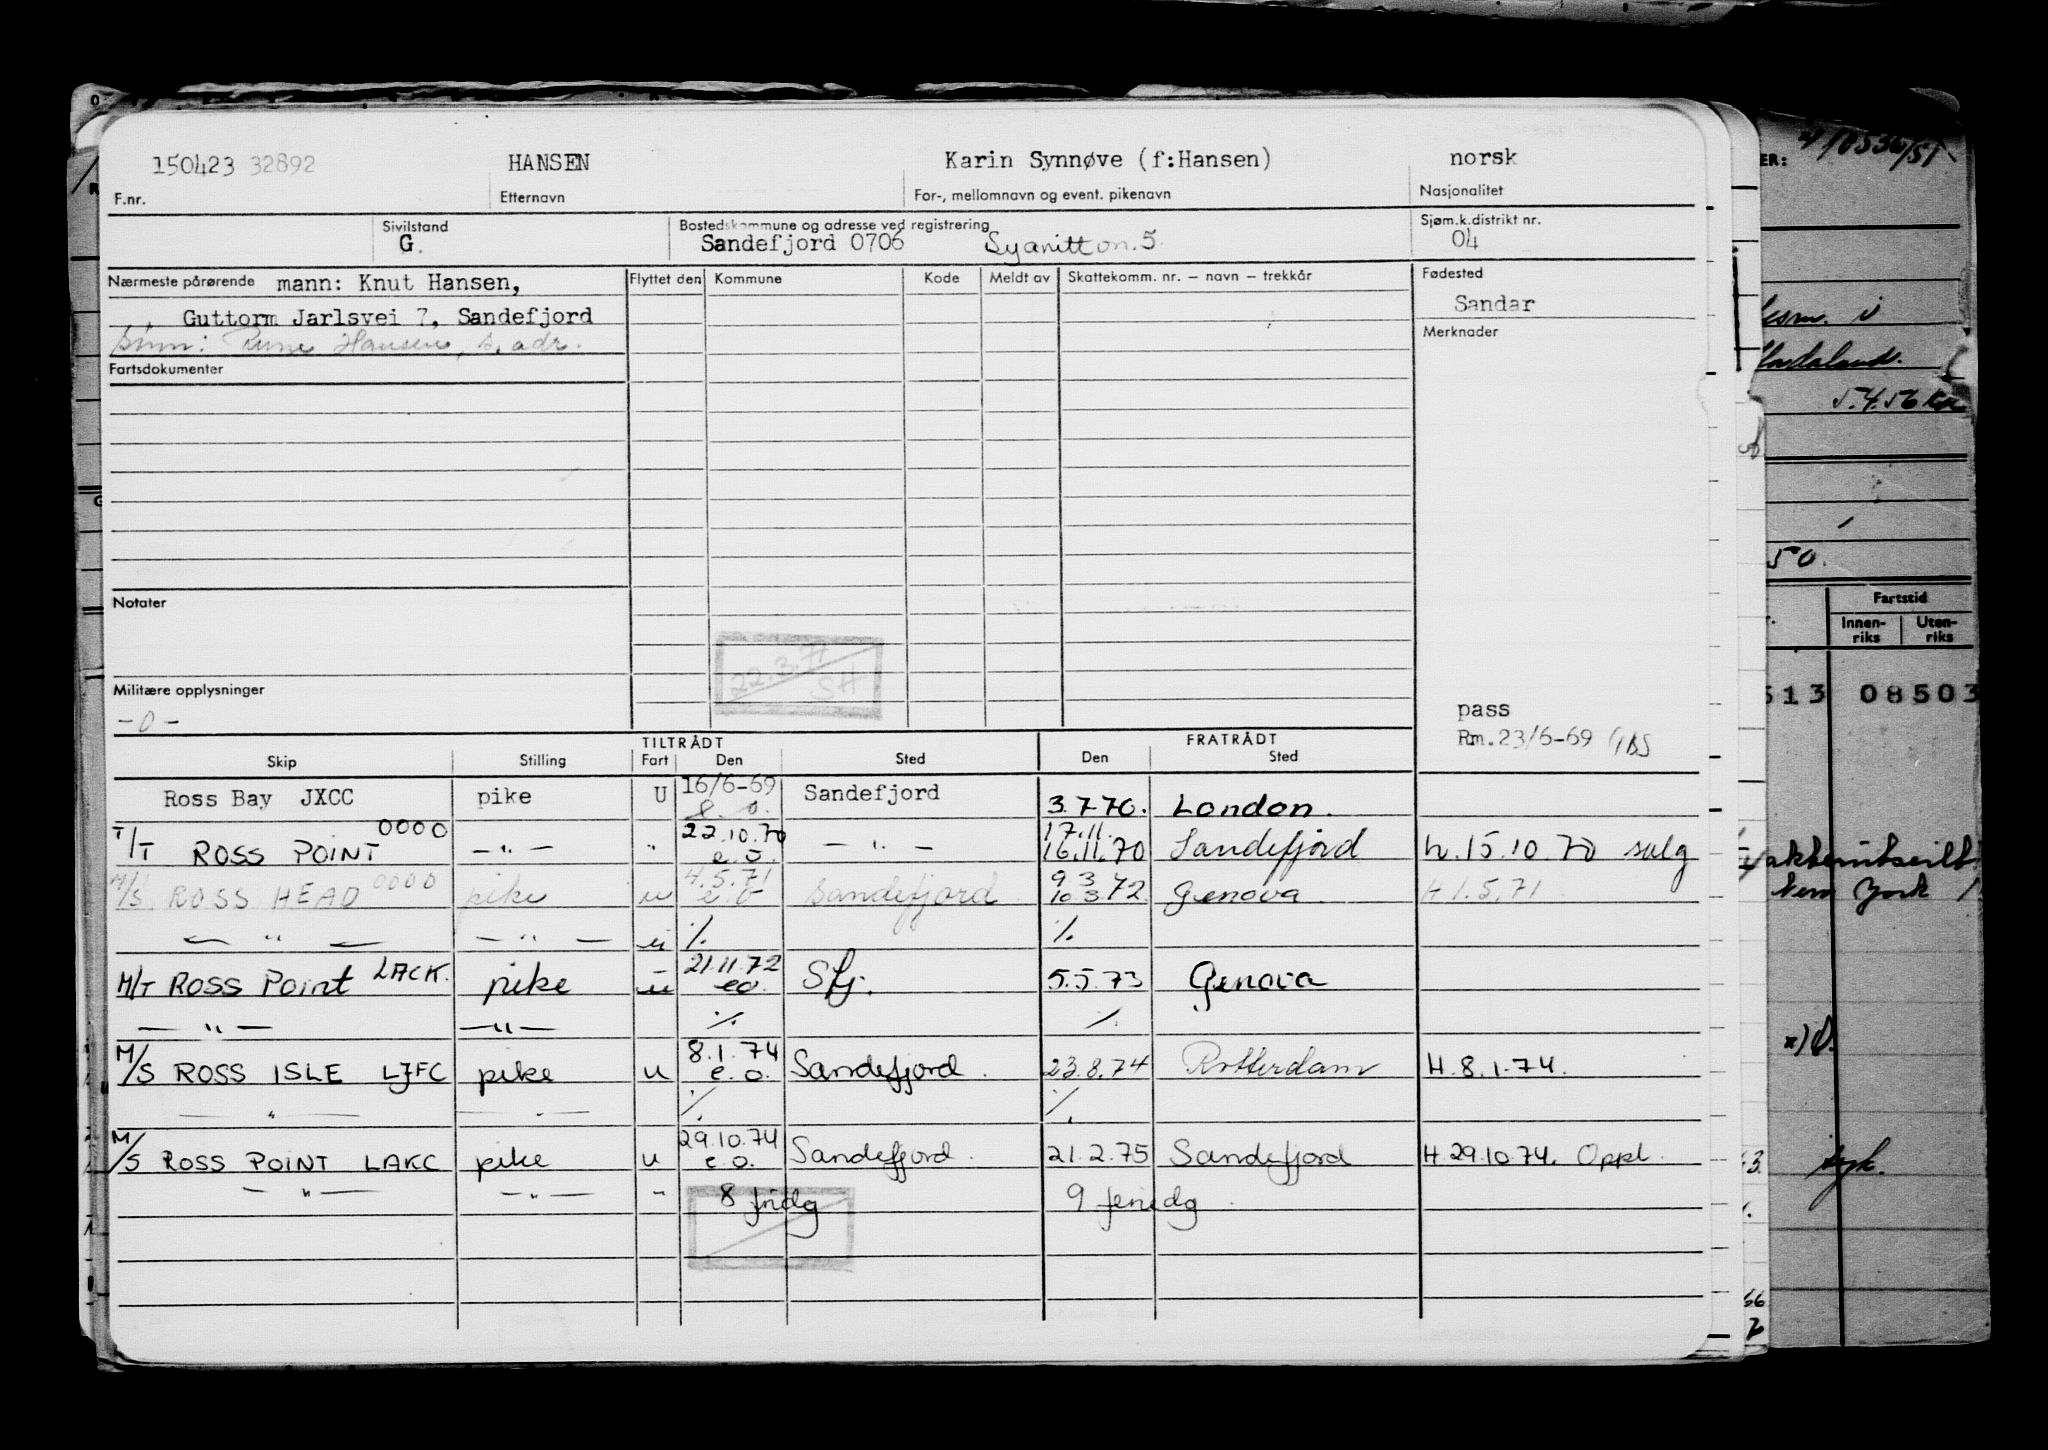 150423 32892 HANSEN Karin Synnøve (f:Hansen) norsk
F.nr. Etternavn For-, mellomnavn og event. pikenavn Nasjonalitet
Sivilstand Bostedskommune og adresse ved registrering Sjøm.k.distrikt nr.
G. Sandefjord 0706 Syanitton. 5. 04
Nærmeste pårørende mann: Knut Hansen, Flyttet den Kommune Kode Meldt av Skattekomm. nr. – navn – trekkår Fødested
Guttorm Jarlsvei 7, Sandefjord Sandar
Sønn: Rune Hansen, s. adr. Merknader
Fartsdokumenter
Notater
22.3.71
SH
Militære opplysninger
-0-
pass
Rm.23/6-69
TILTRÅDT FRATRÅDT
Skip Stilling Fart Den Sted Den Sted
Ross Bay JXCC pike U 16/6-69 Sandefjord 3.7.70. London.
e.o.
T/T ROSS POINT 0000 — " — " 22.10.70 — " — 17.11. Sandefjord h.15.10.70 salg
e.o. 16.11.70
M/S ROSS HEAD 0000 pike u 4.5.71 Sandefjord 9.3 Genova H 1.5.71
e.o 10.3.72
— " — — " — u % %
M/T ROSS Point LACK. pike u 21.11.72 Sfj. 5.5.73 Genova
eo.
— " — — " — % %
M/S ROSS ISLE LJFC pike u 8.1.74 Sandefjord. 23.8.74 Rotterdam H.8.1.74.
e.o.
— " — — " — % %
M/S ROSS POINT LAKC pike u 29.10.74 Sandefjord. 21.2.75 Sandefjord H 29.10.74. Oppl.
e.o.
— " — — " — " 8 fridg 9 feriedg
ER:
10536/51
i
5.4.56
50.
Fartstid
Innen-riks Uten-riks
513 08503
New York
x)
syk.